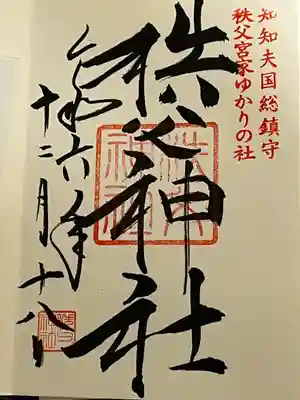 知知夫国総鎮守
秩父宮家ゆかりの社
秩父神社
令和六年
十二月十八日